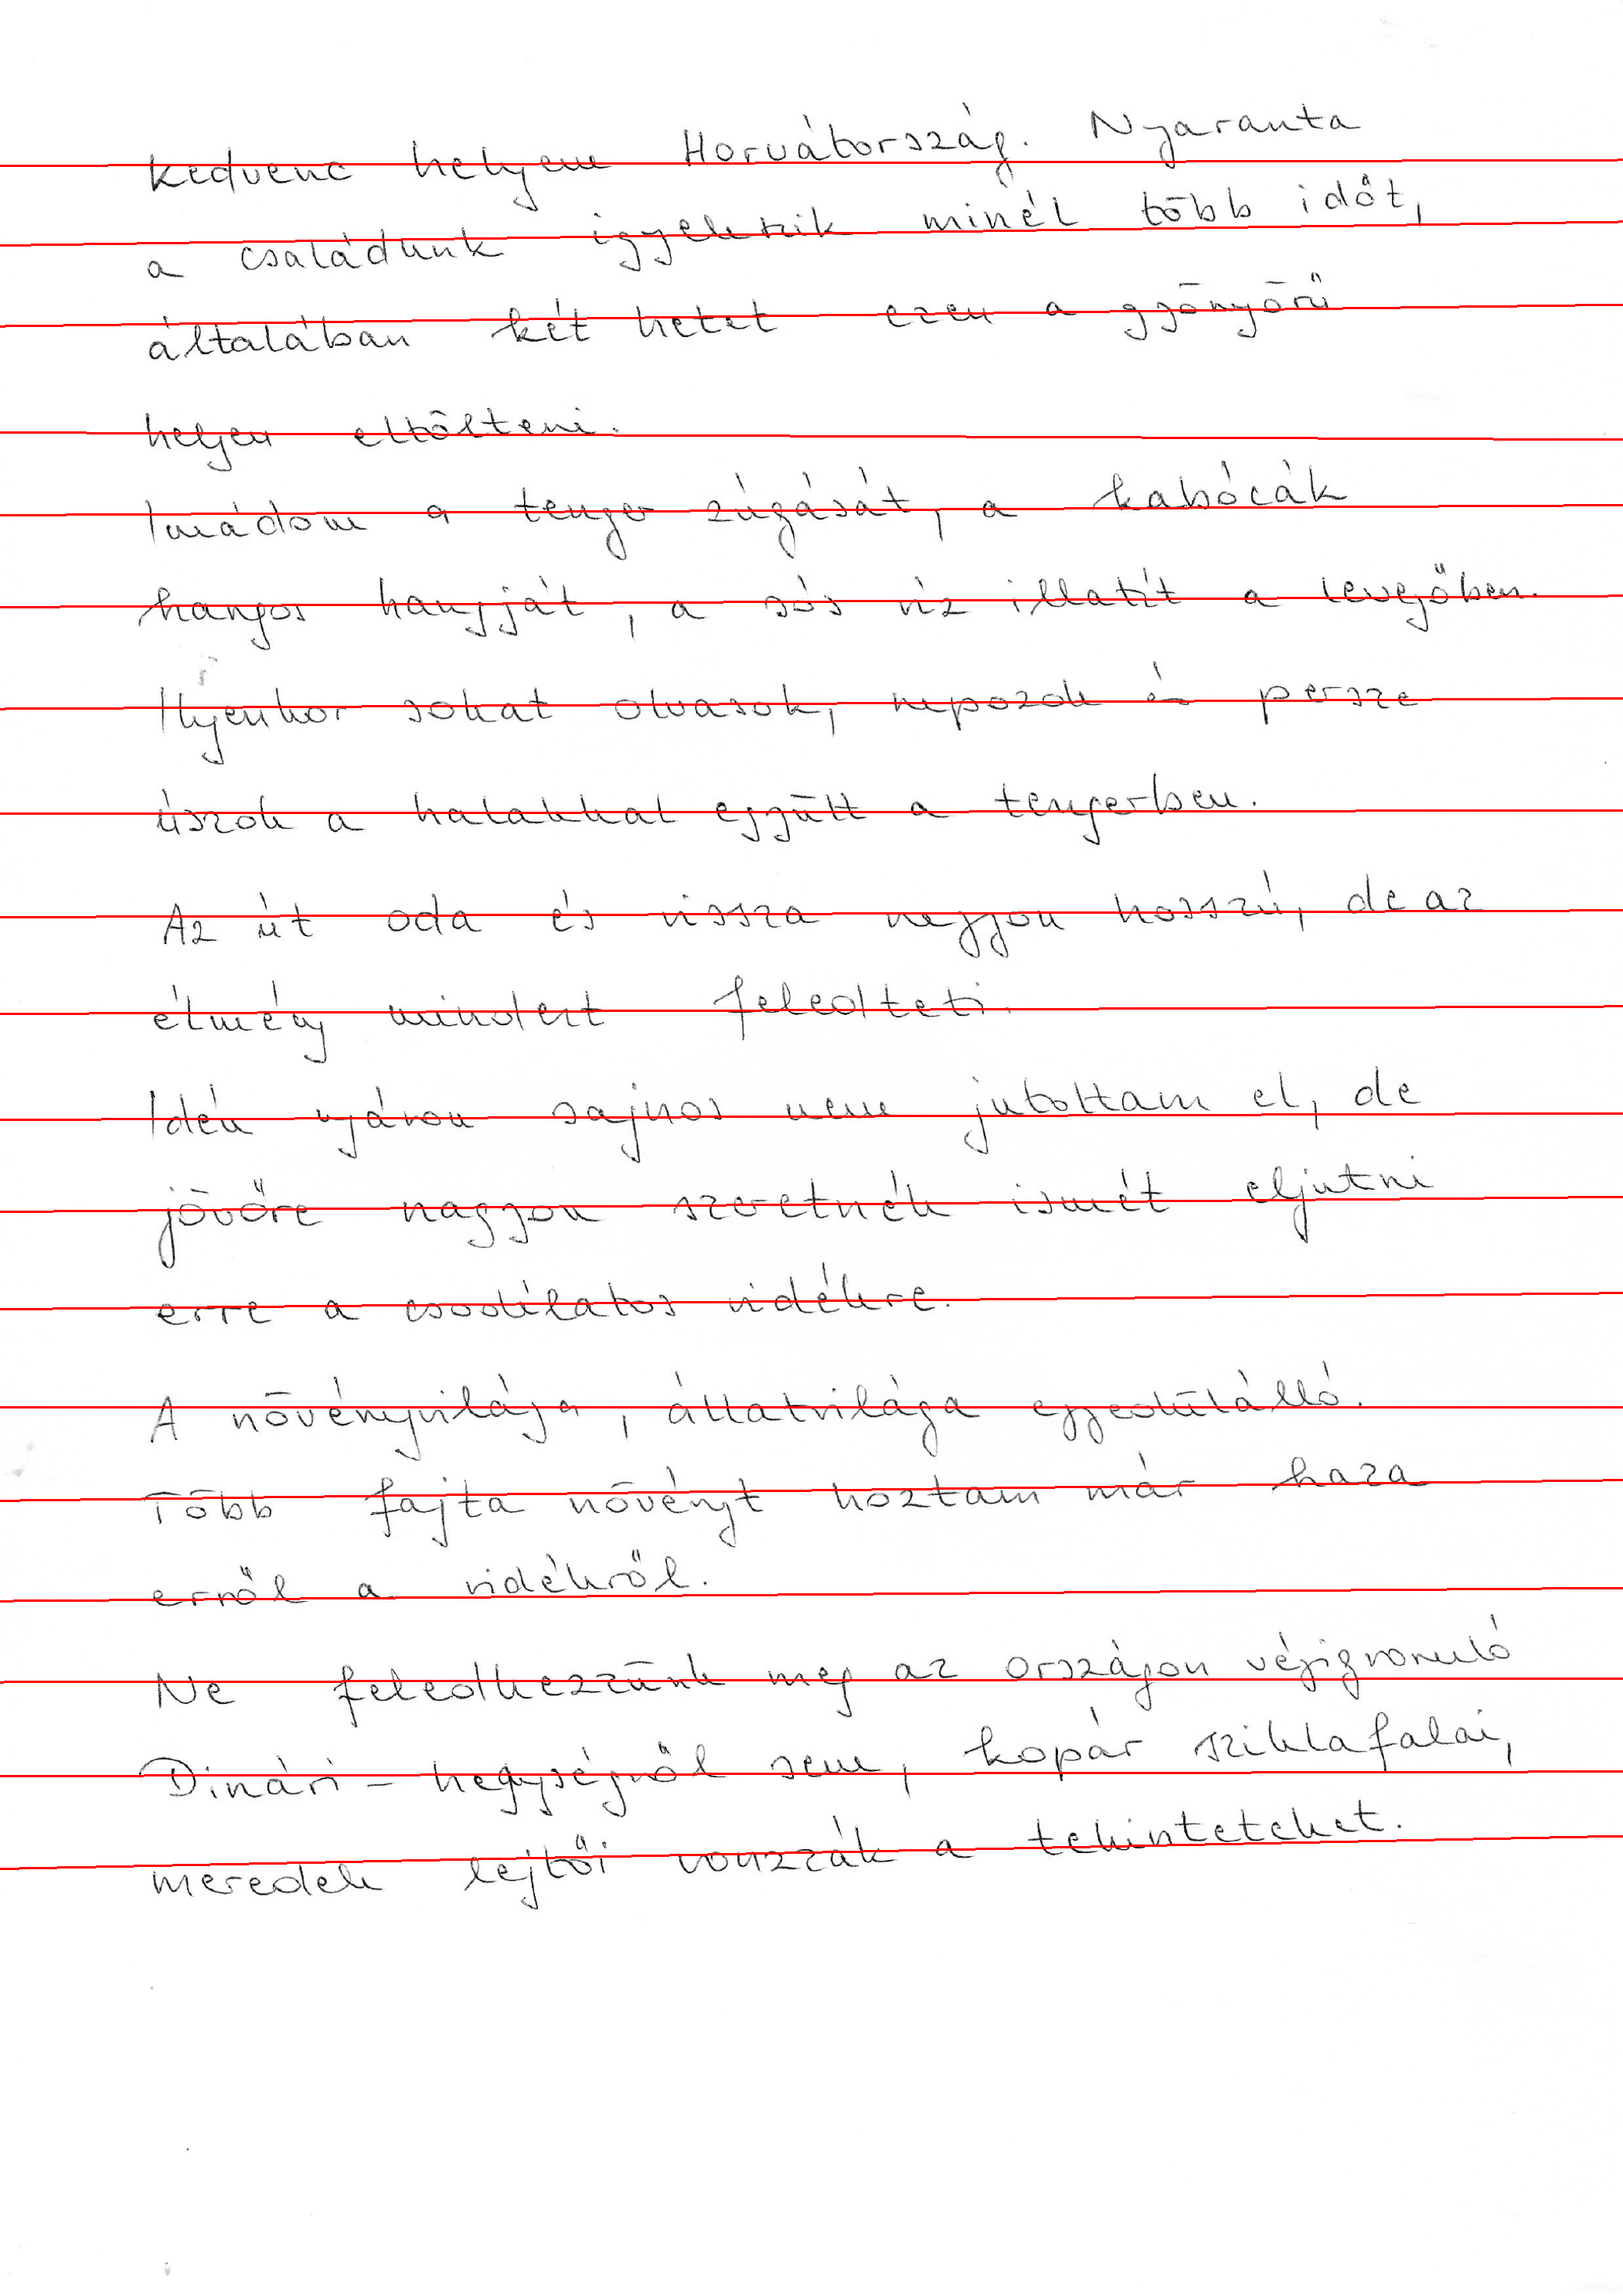 Kedvenc helyem Horvátország. Nyaranta
a családunk igyekszik minél több időt,
általában két hetet ezen a gyönyörű
helyen eltölteni.
Imádom a tenger zúgását, a kabócák
hangos hangját, a sós víz illatát a levegőben.
Ilyenkor sokat olvasok, napozok és persze
úszok a halakkal együtt a tengerben.
Az út oda és vissza nagyon hosszú, de az
élmény mindent feledteti.
Idén nyáron sajnos nem jutottam el, de
jövőre nagyon szeretnék ismét eljutni
erre a csodálatos vidékre.
A növényvilága, állatvilága egyedülálló.
Több fajta növényt hoztam már haza
erről a vidékről.
Ne feledkezzünk meg az országon végigvonuló
Dinári-hegységről sem, kopár sziklafalai,
meredek lejtői vonzzák a tekinteteket.